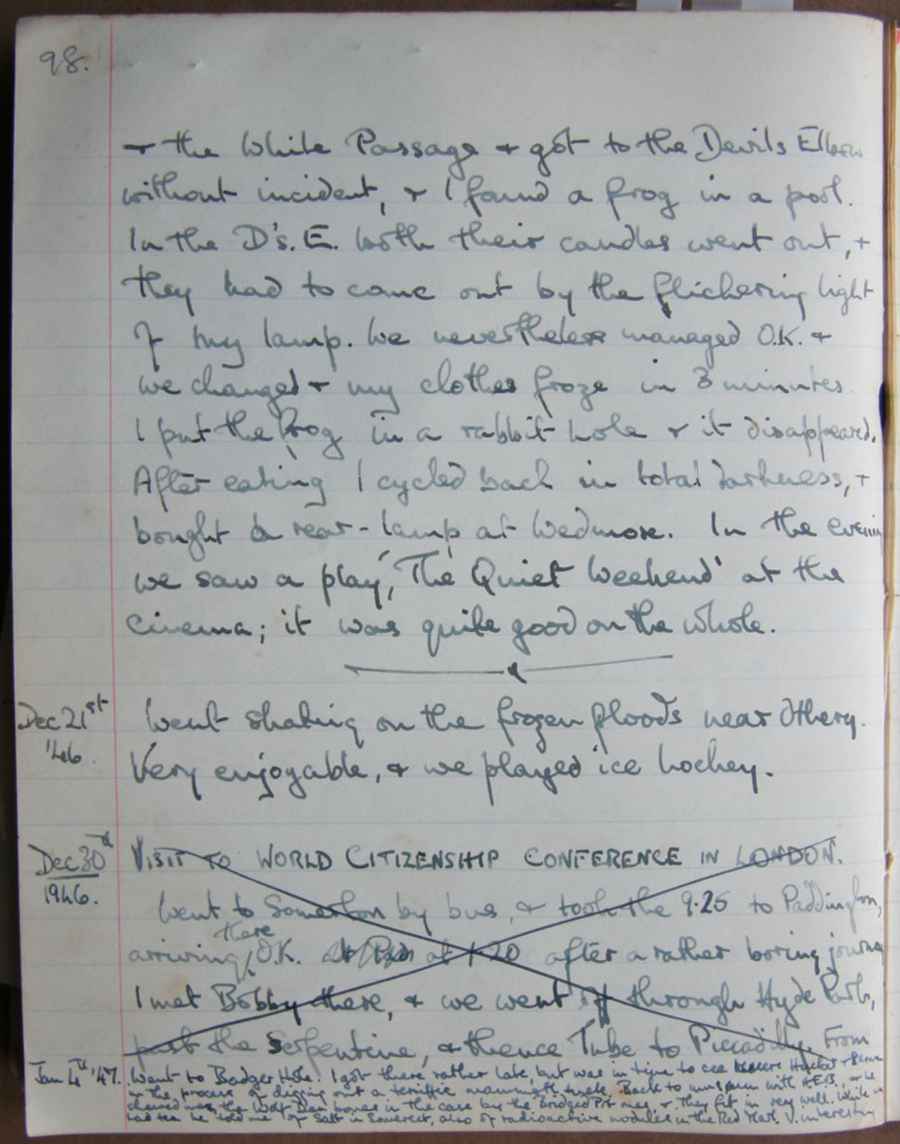 98.
+ the White Passage + got to the Devils Elbow
without incident, + I found a frog in a pool.
In the D's. E. both their candles went out, +
they had to come out by the flickering light
of my lamp. We nevertheless managed O.K. +
we changed + my clothes froze in 3 minutes.
I put the frog in a rabbit hole + it disappeared.
After eating I cycled back in total darkness, +
bought a rear-lamp at Wedmore. In the evening
we saw a play, 'The Quiet Weekend' at the
cinema; it was quite good on the whole.
Dec 21st '46. Went skating on the frozen floods near Othery.
Very enjoyable, + we played ice hockey.
Dec 30th 1946. VISIT TO WORLD CITIZENSHIP CONFERENCE IN LONDON.
Went to Somerton by bus, + took the 9.25 to Paddington,
arriving there O.K. at 1.20 after a rather boring journey
I met Bobby there, + we went off through Hyde Park,
past the Serpentine, + thence Tube to Piccadilly. From
Jan 4th '47. Went to Badger Hole. I got there rather late, but was in time to see
in the process of digging out a terrific mammoth tusk. Back to museum with H.E.B. +
the Wolf Den bones in the case by the Bridged Pot ones + they fit in very well. While
had tea he told me of Salt in Somerset, also of radioactive nodules in the Red Marl. V. interesting